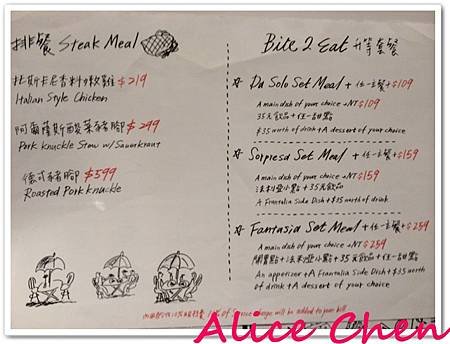 排餐 Steak Meal
托斯卡尼香料嫩雞 $219
Italian Style Chicken
阿爾薩斯酸菜豬腳 $299
Pork Knuckle Stew w/ Sauerkraut
德式豬腳 $599
Roasted Pork Knuckle
Bite 2 Eat 升等套餐
☆ Da Solo Set Meal +任一主餐+$109
A main dish of your choice +NT$109
35元飲品+任一甜點
$35 worth of drink + A dessert of your choice
☆ Sorpresa Set Meal +任一主餐+$159
A main dish of your choice +NT$159
+35元飲品
A Frantalia Side Dish + $35 worth of drink
☆ Fantasia Set Meal +任一主餐+$259
A main dish of your choice +NT$259
開胃點+ +35元飲品+任一甜點
An appetizer + A Frantalia Side Dish + $35 worth
of drink + A dessert of your choice
10% of Service Charge will be added to your bill
Alice Chen